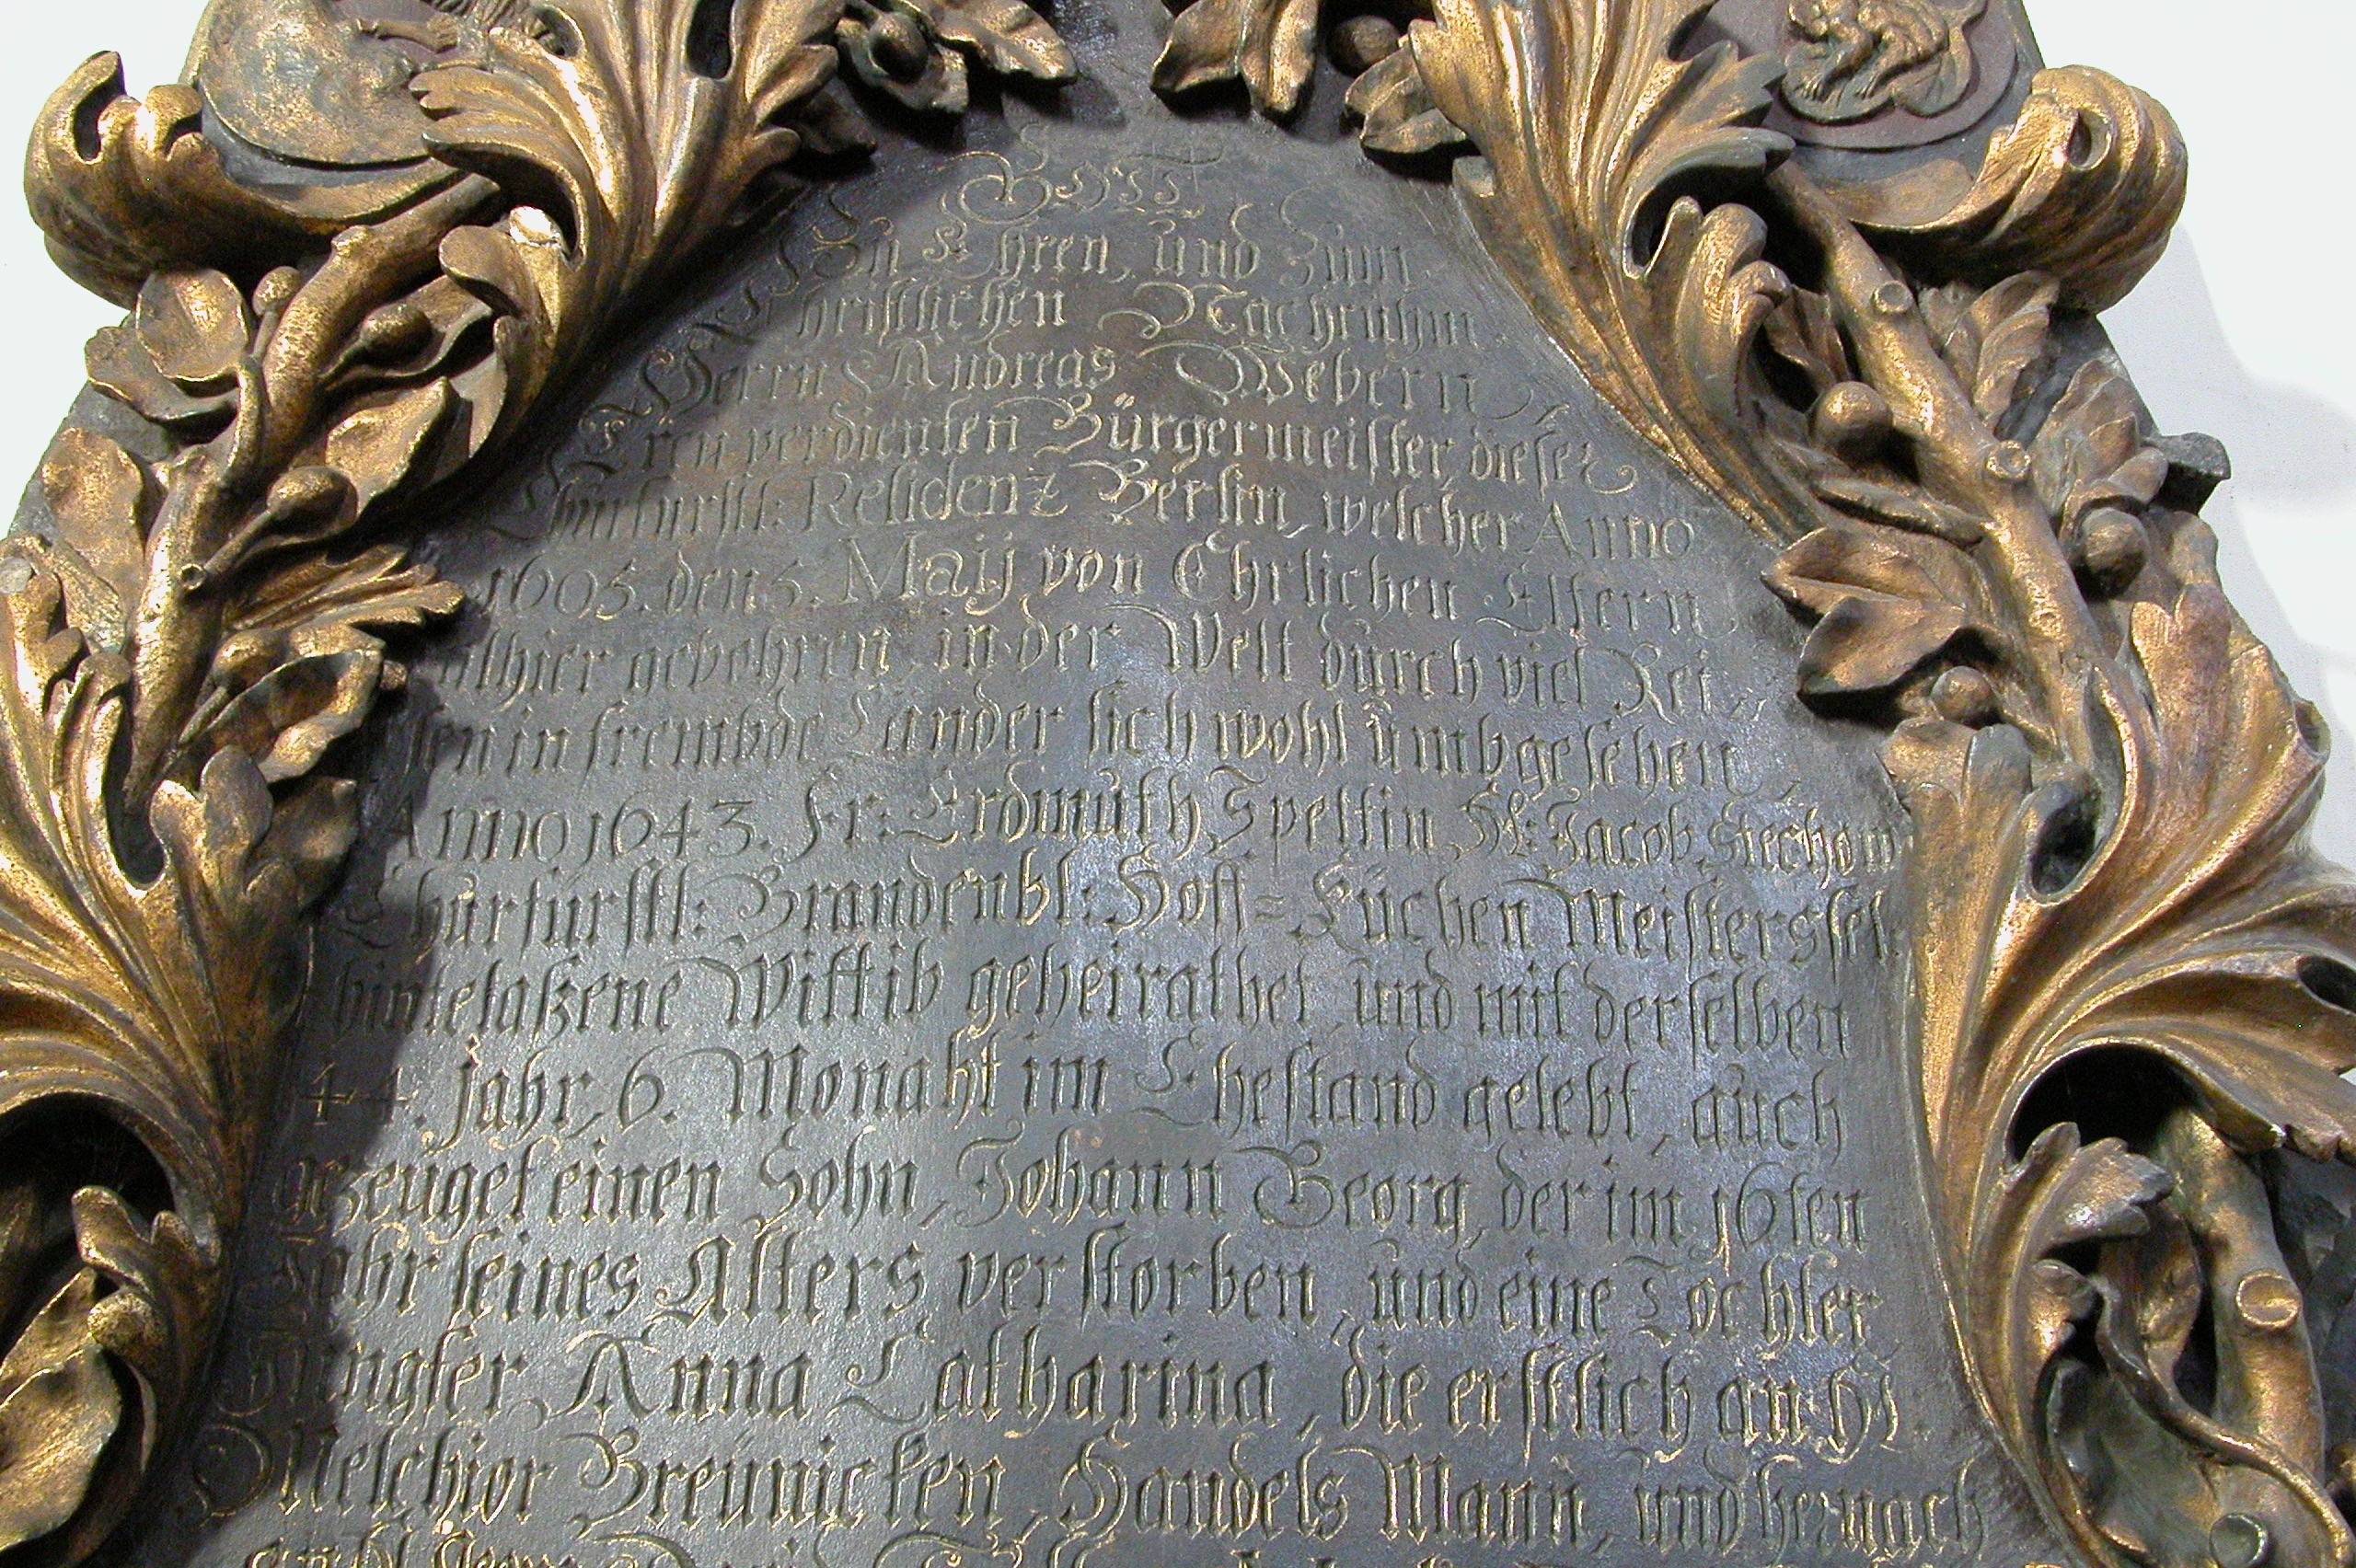 GOTT
Zu Ehren, und Zum
Christlichen Nachruhm
Herrn Andreas Webern
Ehren verdienten Bürgermeister, dieser
Churfurstl: Residentz Berlin, welcher Anno
1605. den 5. Maij von Ehrlichen Eltern
alhier gebohren, in der Welt durch viel Rei„
sen in frembde Länder sich wohl umbgesehen,
Anno 1643. Fr: Erdmuth Speltin, H: Jacob Stechow
Churfurstl: Brandenbl: Hoff= Küchen Meisters sel:
hintelaßene Wittib geheirathet, und mit derselben
44. Jahr, 6. Monaht im Ehestand gelebt, auch
gezeuget einen Sohn, Johann Georg, der im 16ten
Jahr seines Alters verstorben, und eine Tochter
Jungfer, Anna Catharina, die erstlich an Hl.
Melchior Breunicken, Handels Mann, und hernach